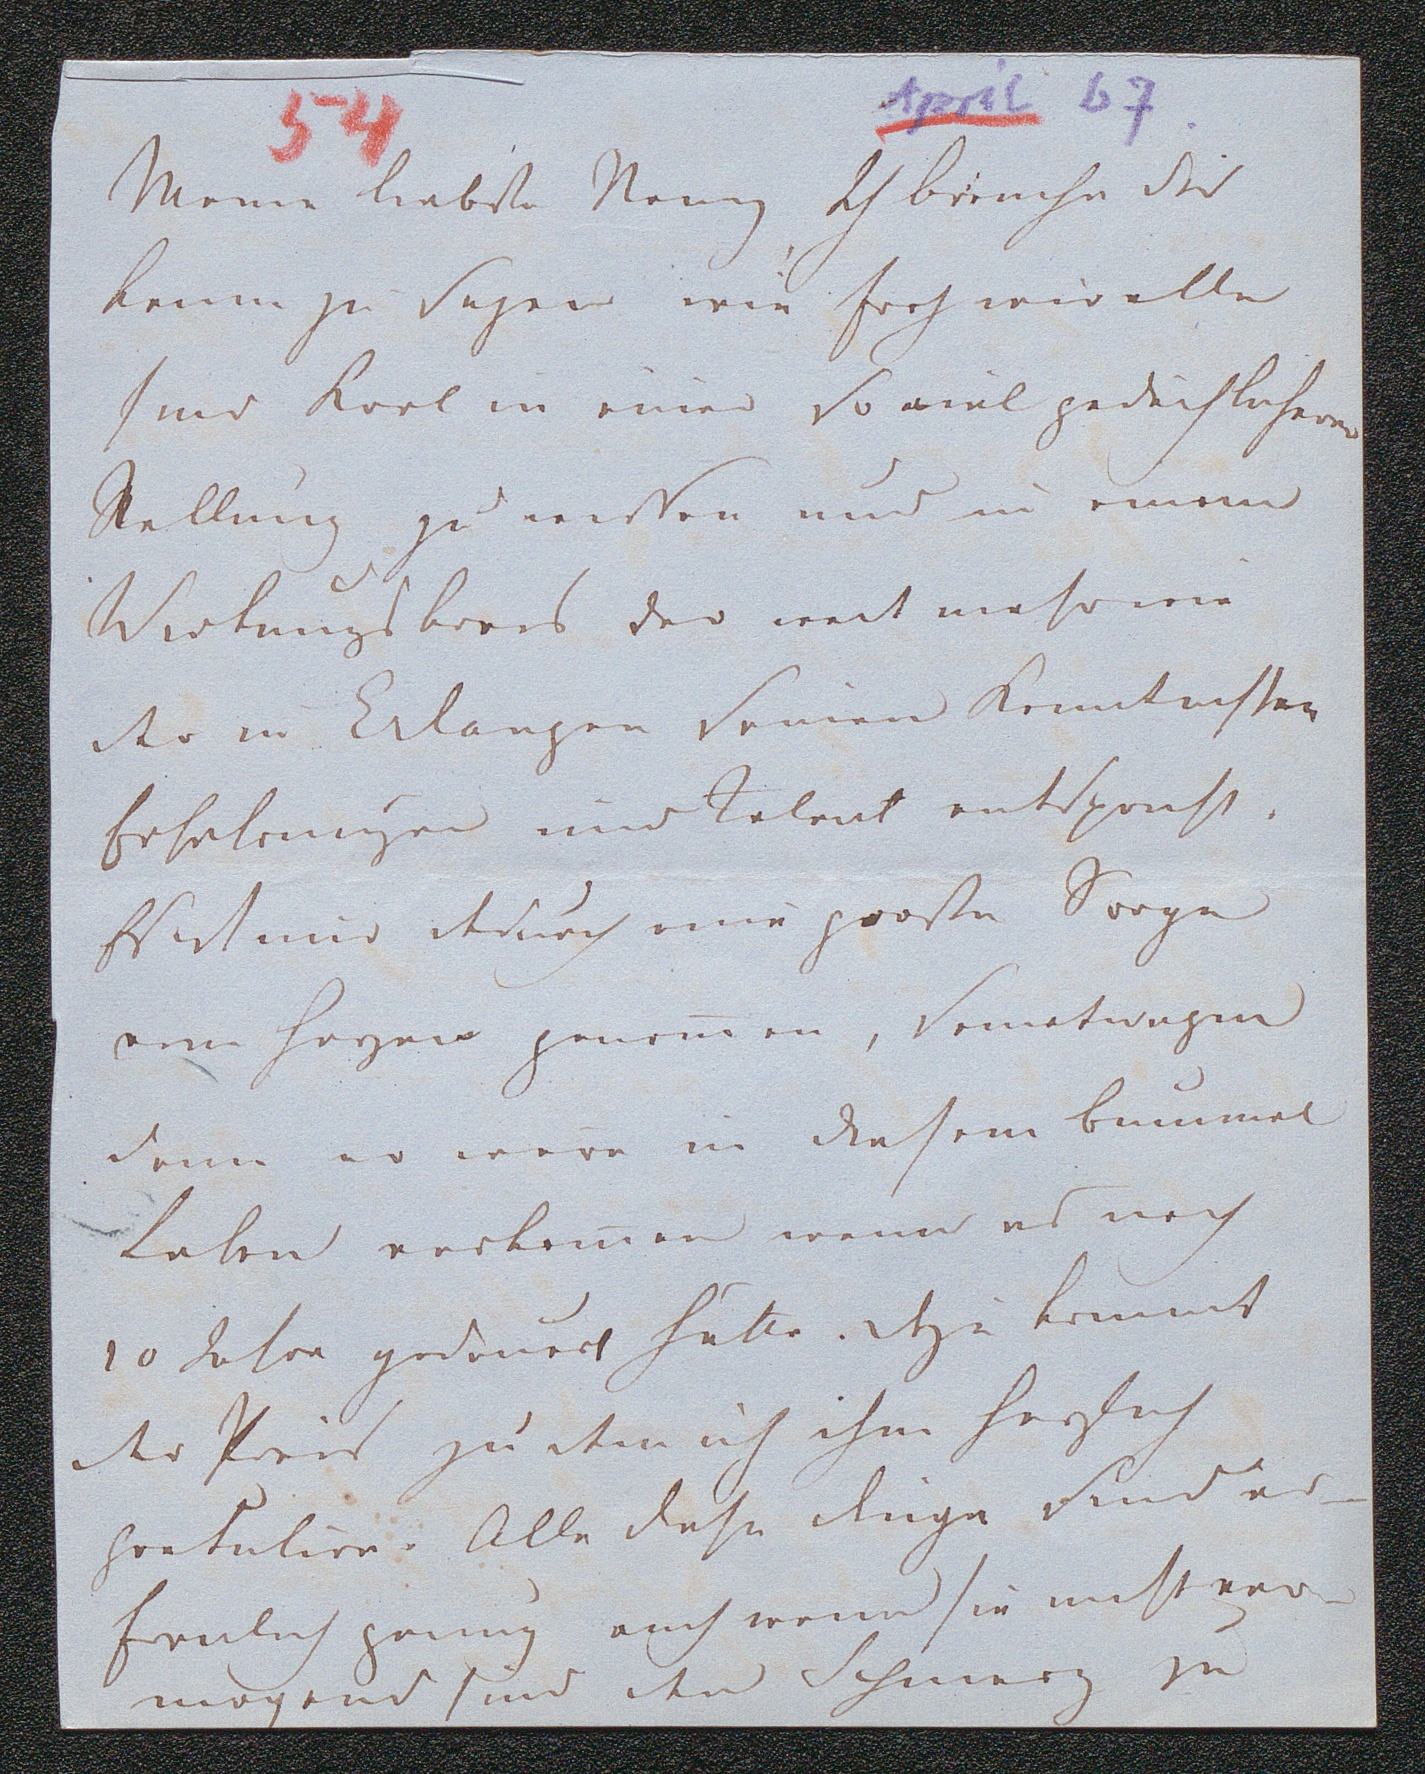 54
April 67.
Meine liebste Nany, Ich brauche dir
kaum zu sagen wie froh wir alle
sind Karl in einer so viel gedeihlicheren
Stellung zu wissen und in einem
Wirkungskreis der weit mehr wie
der in Erlangen seinen Kenntnissen
Erfahrungen und Talent entspricht.
Es ist mir dadurch eine große Sorge
vom Herzen genom̅en, seinetwegen
denn er wäre in diesem bummel
Leben verkom̅en wenn es noch
10 Jahre gedauert hätte. Dazu kommt
der Preis zu dem ich ihm herzlich
gratulire. Alle diese Dinge sind er-
freulich genug auch wenn sie nicht ver-
mögend sind den Schmerz zu